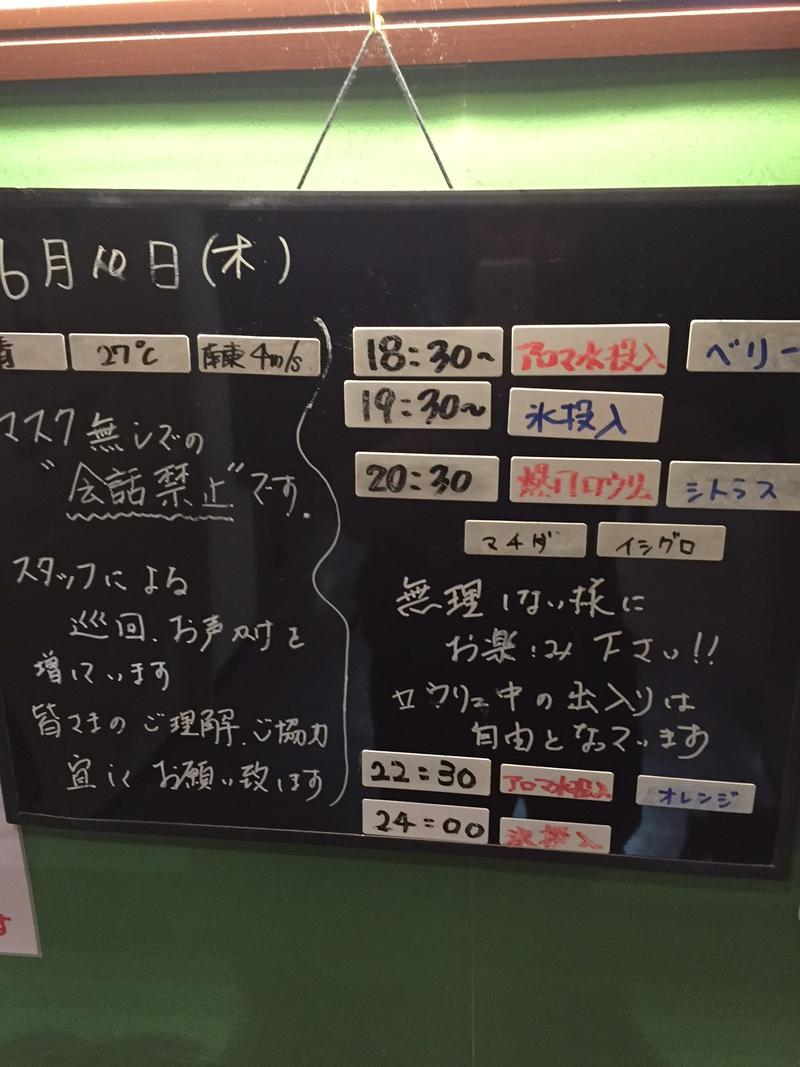 6月10日(木)
27℃ 南東4m/s
マスク無しでの
"会話禁止"です.
スタッフによる
巡回、お声掛けを
増しています
皆さまのご理解、ご協力
宜しくお願い致します
18:30~ アロマ水投入 ベリー
19:30~ 氷投入
20:30 爆汗ロウリュ シトラス
マチダ イシグロ
無理しない様に
お楽しみ下さい!!
ロウリュ中の出入りは
自由となっています
22:30 アロマ水投入 オレンジ
24:00 氷投入